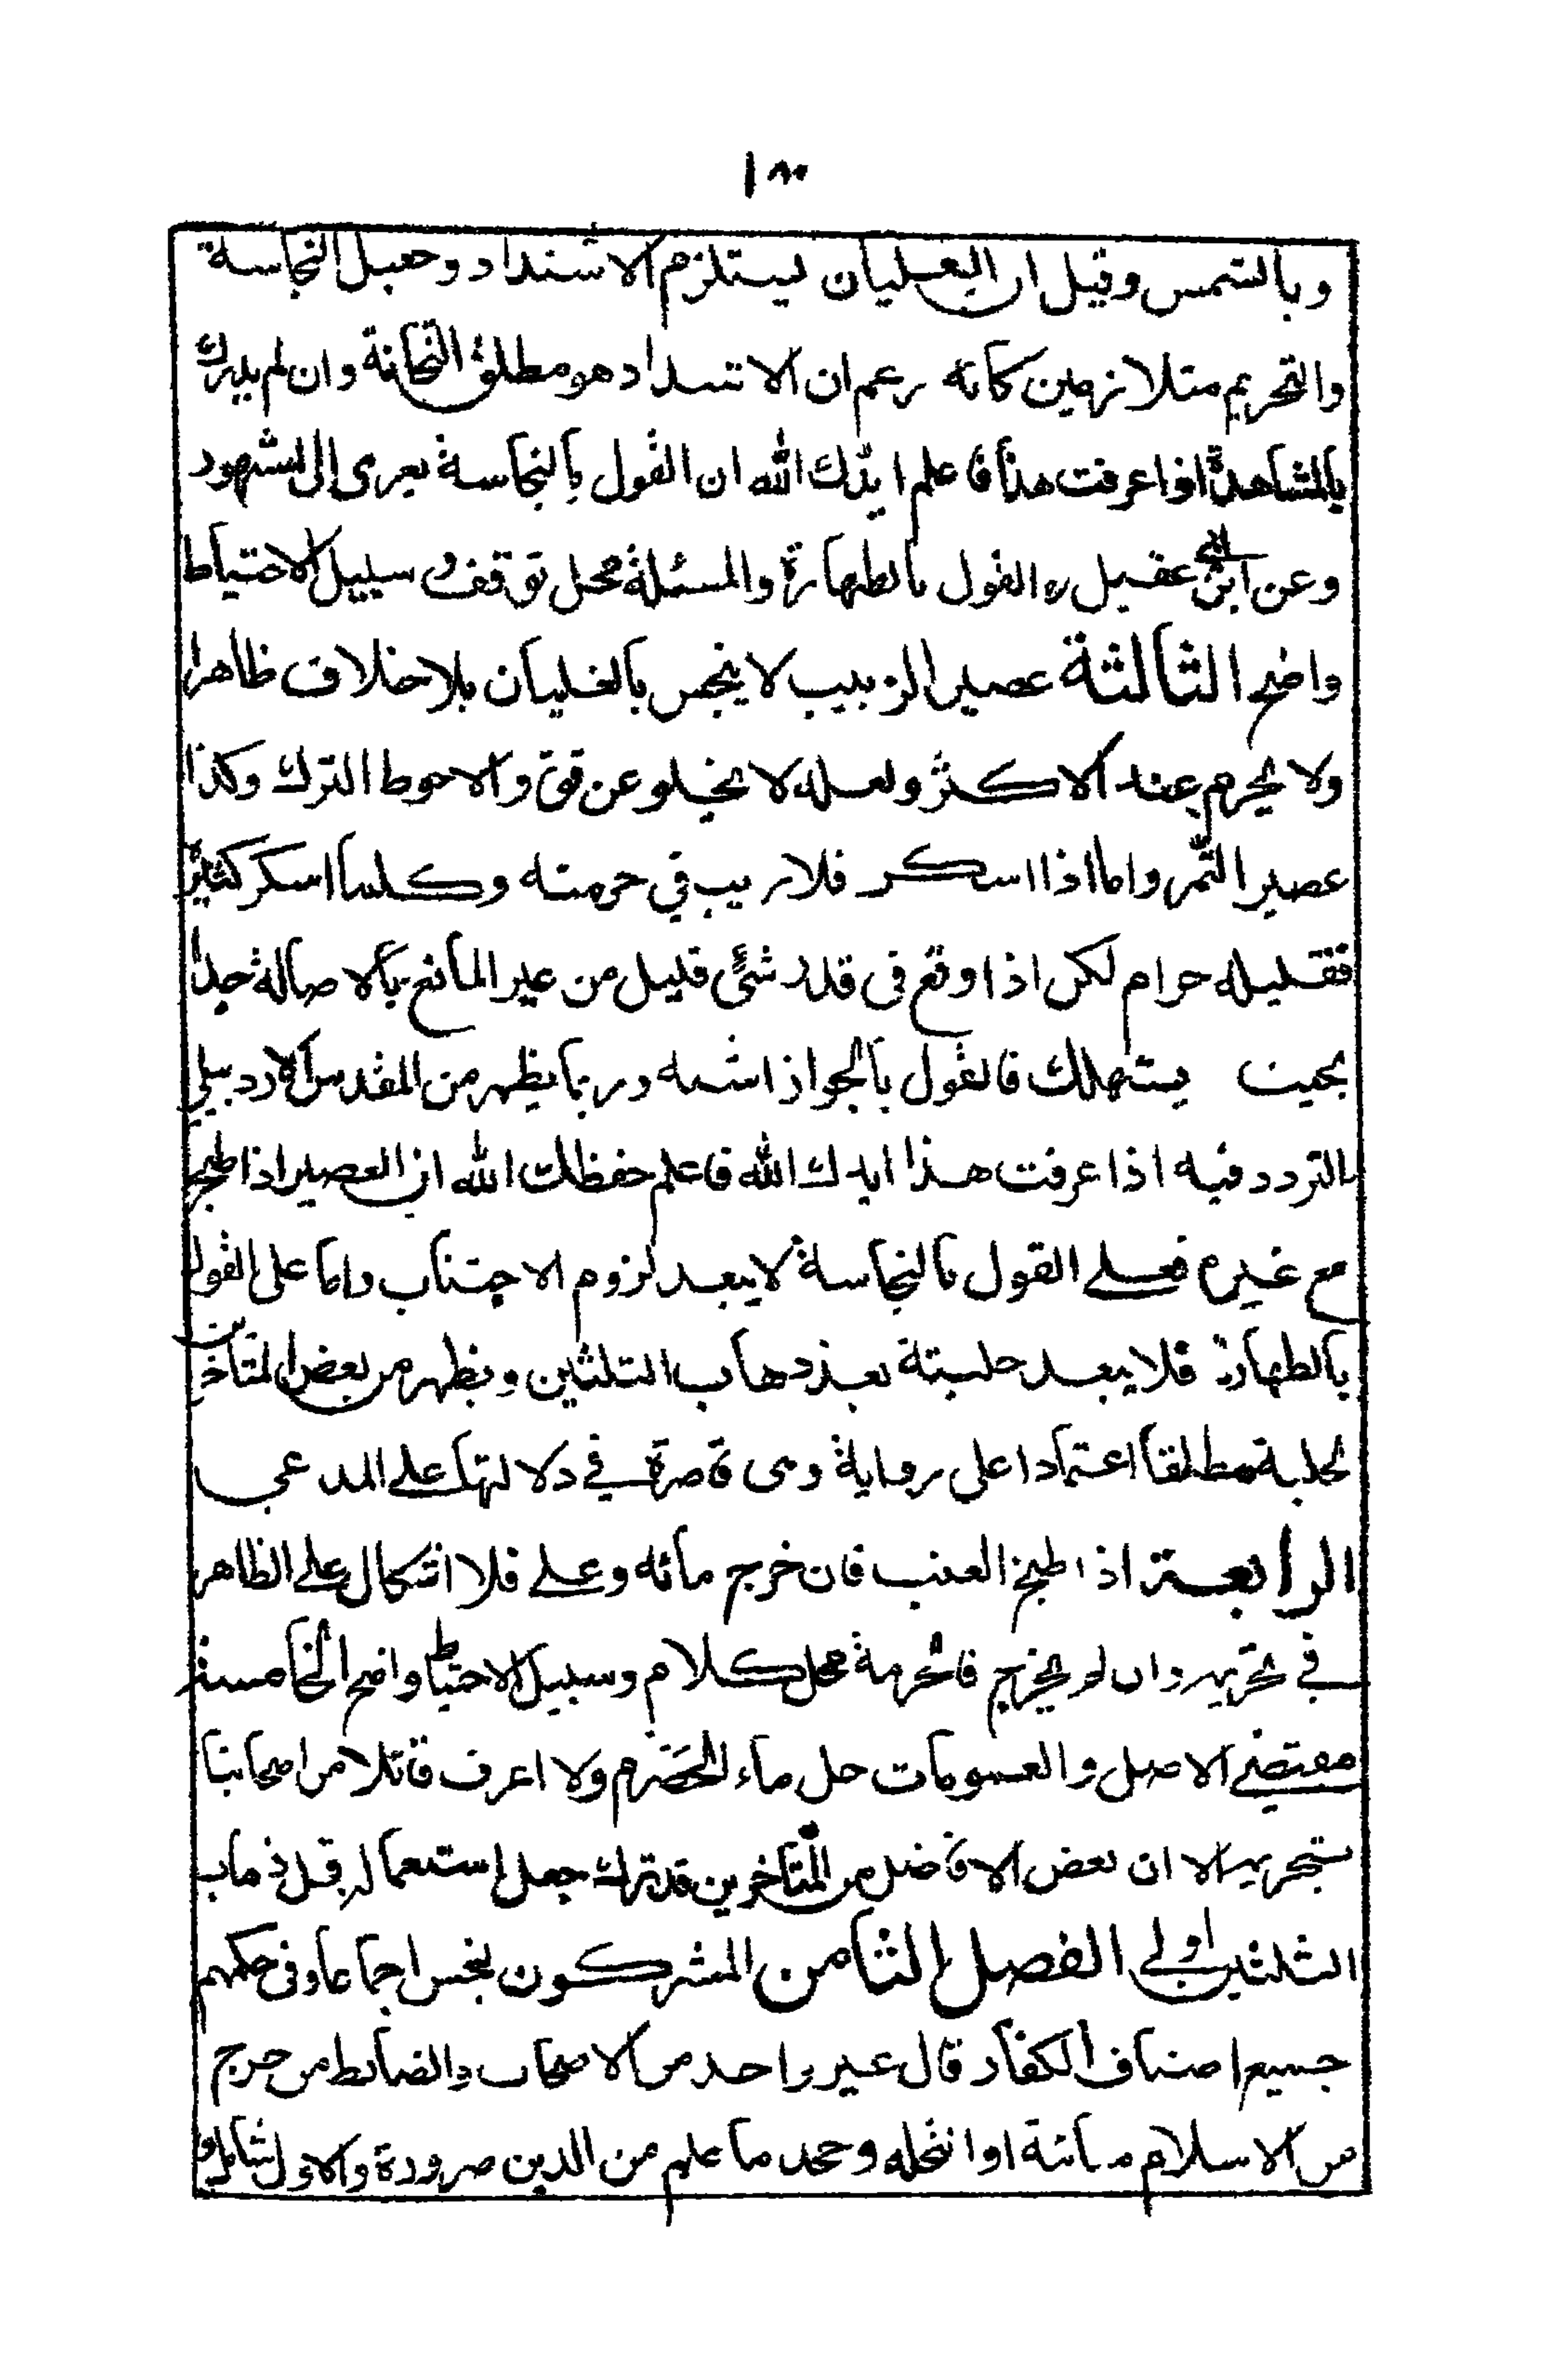 وبالشمس وقيل ان الغليان يستلزم الاشتداد وجعل النجاسة
والتحريم متلازمين كانه زعم ان الاشتداد هو مطلق الثخانة وان لم يدرك
بالمشاهدة اذا عرفت هذا فاعلم ايدك الله ان القول بالنجاسة يعزى الى المشهور
وعن ابن ابي عقيل ره القول بالطهارة والمسئلة محل توقف و سبيل الاحتياط
واضح الثالثة عصير الزبيب لا ينجس بالغليان بلا خلاف ظاهرا
ولا يحرم عند الاكثر ولعله لا يخلو عن قوة والاحوط الترك وكذا
عصير التمر واما اذا اسكر فلا ريب في حرمته وكلما اسكر كثيره
فقليله حرام لكن اذا وقع في قدر شئ قليل من غير المائع بالاصالة جدا
بحيث يستهلك فالقول بالجواز اشبه وربما يظهر من المقدس الاردبيلي
التردد فيه اذا عرفت هذا ايدك الله فاعلم حفظك الله ان العصير اذا طبخ
مع غيره فعلى القول بالنجاسة لا يبعد لزوم الاجتناب واما على القول
بالطهارة فلا يبعد حليته بعد ذهاب الثلثين ويظهر من بعض المتاخرين
حليته مطلقا اعتمادا على رواية وهى قاصرة في دلالتها على المدعى
الرابعة اذا طبخ العنب فان خرج مائه وغلى فلا اشكال على الظاهر
في تحريمه وان لم يخرج فالحرمة محل كلام وسبيل الاحتياط واضح الخامسة
مقتضى الاصل والعمومات حل ماء الحصرم ولا اعرف قائلا من اصحابنا
بتحريمه الا ان بعض الافاضل من المتاخرين قد ترك جعل استعماله قبل ذهاب
الثلثين اولى الفصل الثامن المشركون نجس اجماعا وفي حكمهم
جميع اصناف الكفار قال غير واحد من الاصحاب والضابط من خرج
من الاسلام مباينة او انتحله وجحد ما علم من الدين ضرورة والاول شامل